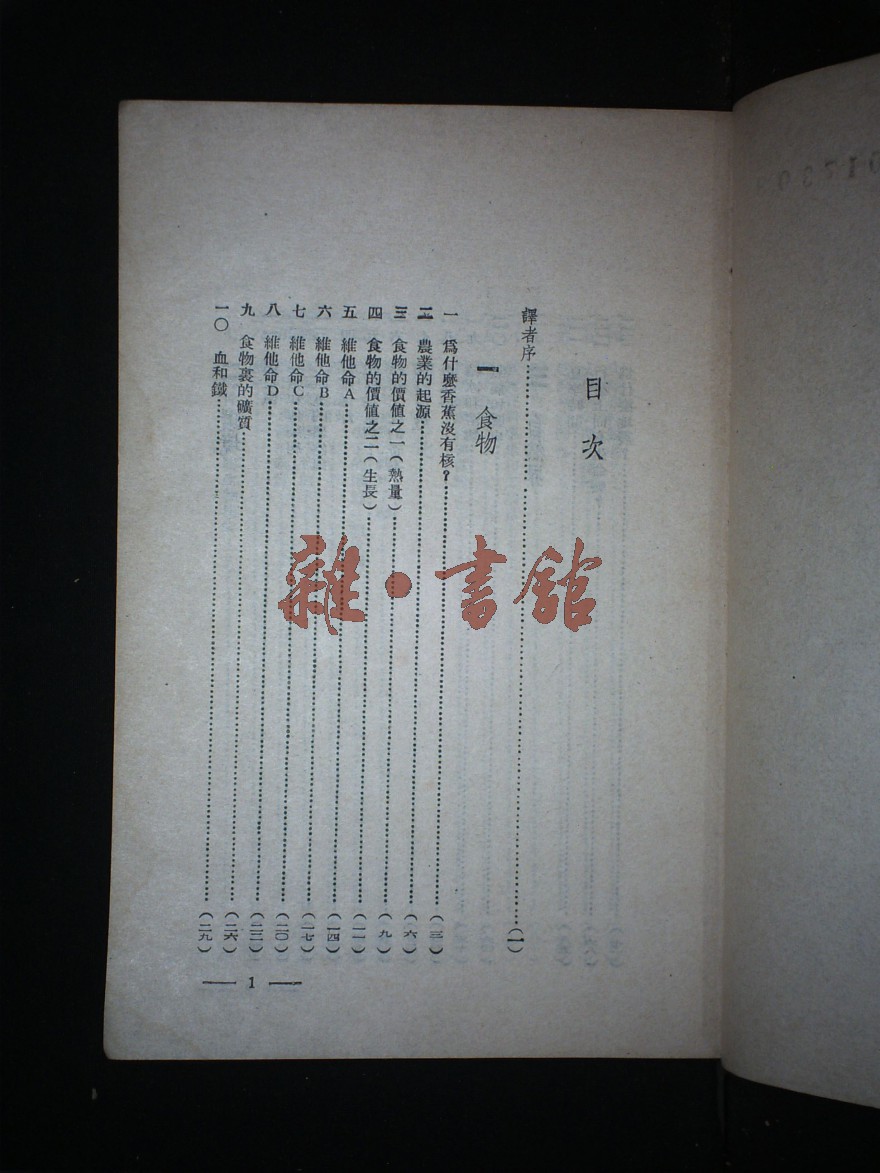 目次
譯者序……（一）
一 食物
一 爲什麼香蕉沒有核？……（三）
二 農業的起源……（六）
三 食物的價值之一（熱量）……（九）
四 食物的價值之二（生長）……（一一）
五 維他命A……（一四）
六 維他命B……（一七）
七 維他命C……（二〇）
八 維他命D……（二三）
九 食物裏的礦質……（二六）
一〇 血和鐵……（二九）
— 1 —
雜·書館
01730